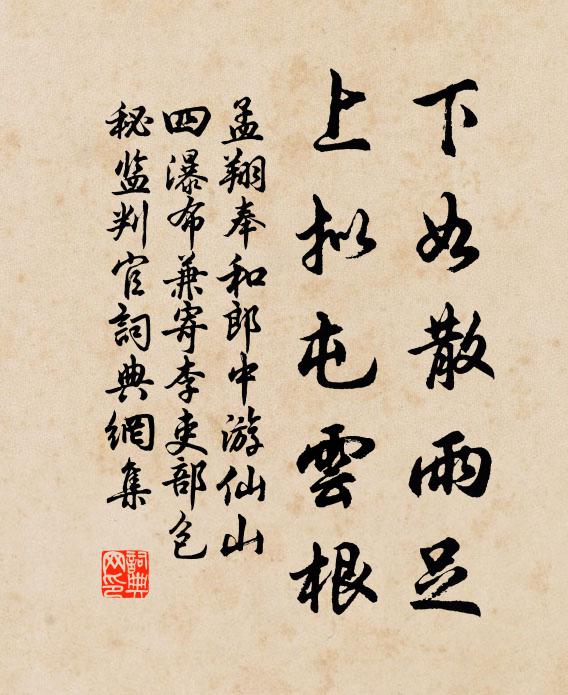 下如散雨足
上拟屯雲根
孟翔奉和郎中游仙山
四瀑布兼寄李吏部包
秘监判官詞典網集
詞典网印